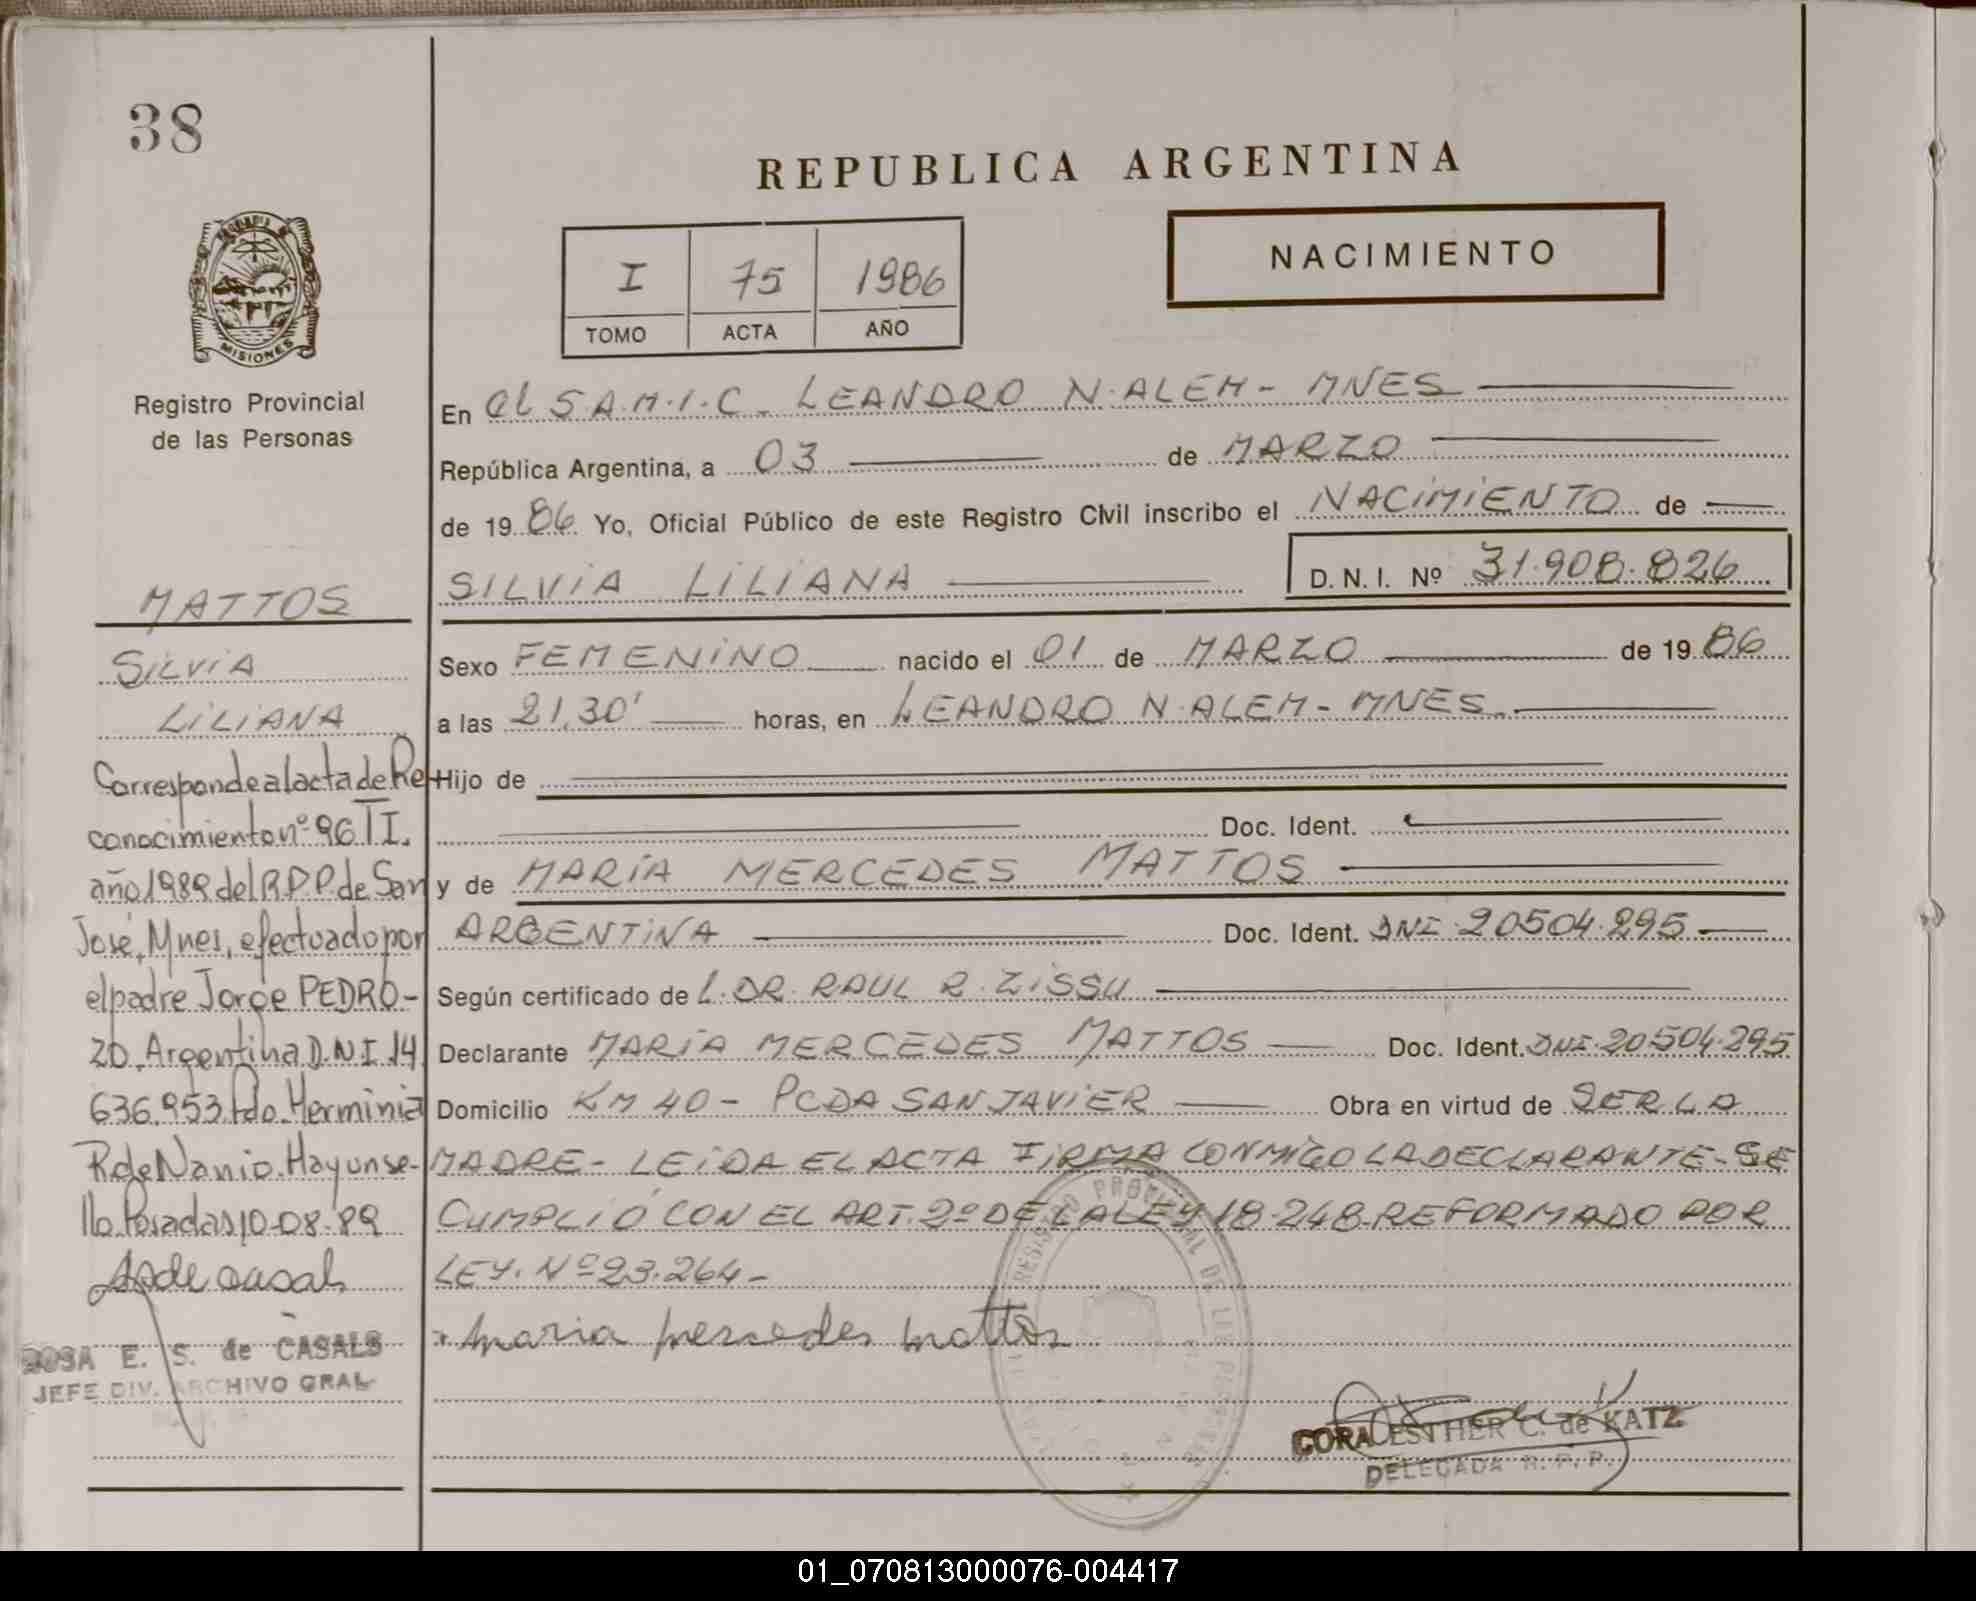 38
REPUBLICA ARGENTINA
NACIMIENTO
I 75 1986
TOMO ACTA AÑO
MISIONES
Registro Provincial
de las Personas
En el S.A.M.I.C. LEANDRO N. ALEM - MNES
República Argentina, a 03 de MARZO
de 1986. Yo, Oficial Público de este Registro Civil inscribo el NACIMIENTO de
SILVIA LILIANA D.N.I. Nº 31.908.826
Sexo FEMENINO nacido el 01 de MARZO de 1986
a las 21,30' horas, en LEANDRO N. ALEM - MNES
Hijo de
Doc. Ident.
y de MARIA MERCEDES MATTOS
ARGENTINA Doc. Ident. DNI 20504.295
Según certificado de L. DR. RAUL R. ZISSU
Declarante MARIA MERCEDES MATTOS Doc. Ident. DNI. 20504.295
Domicilio KM 40 - PCDA SAN JAVIER Obra en virtud de SER LA
MADRE - LEIDA EL ACTA FIRMA CONMIGO LA DECLARANTE - SE
CUMPLIÓ CON EL ART. 2º DE LA LEY 18.248 REFORMADO POR
LEY. Nº 23.264 -
Maria Mercedes Mattos
REGISTRO PROVINCIAL DE LAS PERSONAS
CORA ESTHER C. de KATZ
DELEGADA R. P. P.
MATTOS
SILVIA
LILIANA
Corresponde al acta de Re
conocimiento nº 96 TI.
año 1989 del R.P.P. de San
José, Mnes, efectuado por
el padre Jorge PEDRO-
ZO. Argentina D.N.I. 14.
636.953. Fdo. Herminia
R. de Nanio. Hay un se-
llo. Posadas 10-08-89
ROSA E. S. de CASALS
JEFE DIV. ARCHIVO GRAL
01_070813000076-004417